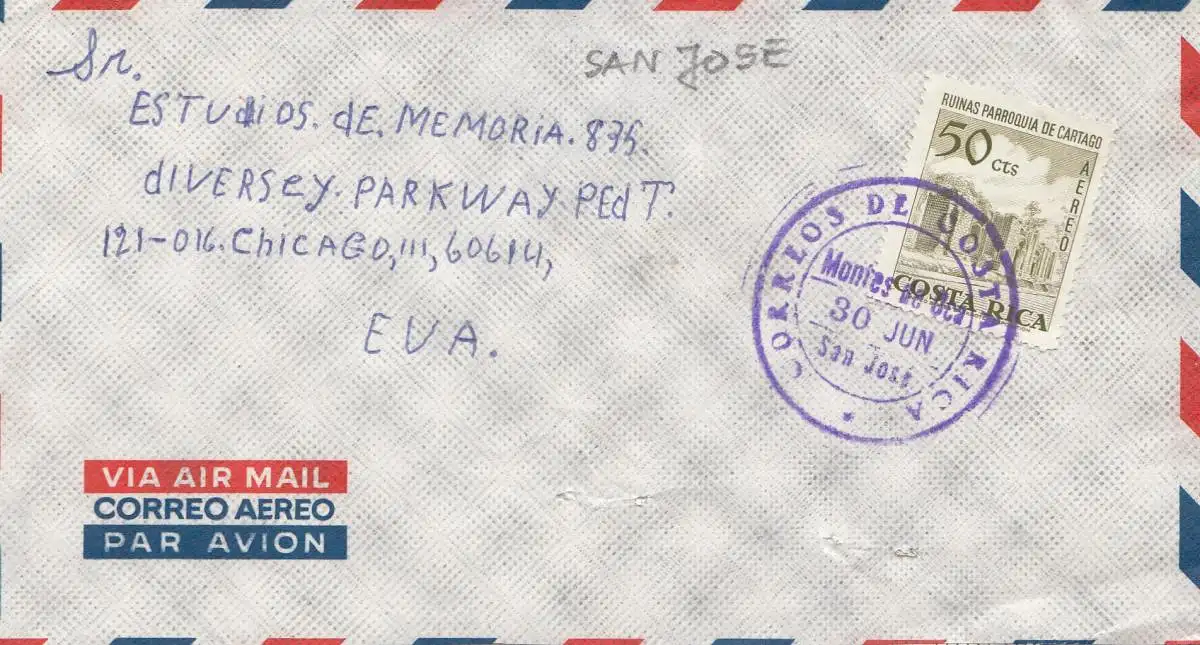 Sr.
SAN JOSE
ESTUdiOS. dE. MEMORIA. 835.
dIVERSEY. PARKWAY. PEdT.
121-016. ChICAGO, III, 60614,
EVA.
RUINAS PARROQUIA DE CARTAGO
50 cts
AEREO
COSTA RICA
CORREOS DE COSTA RICA
Montes de Oca
30 JUN
San José
VIA AIR MAIL
CORREO AEREO
PAR AVION